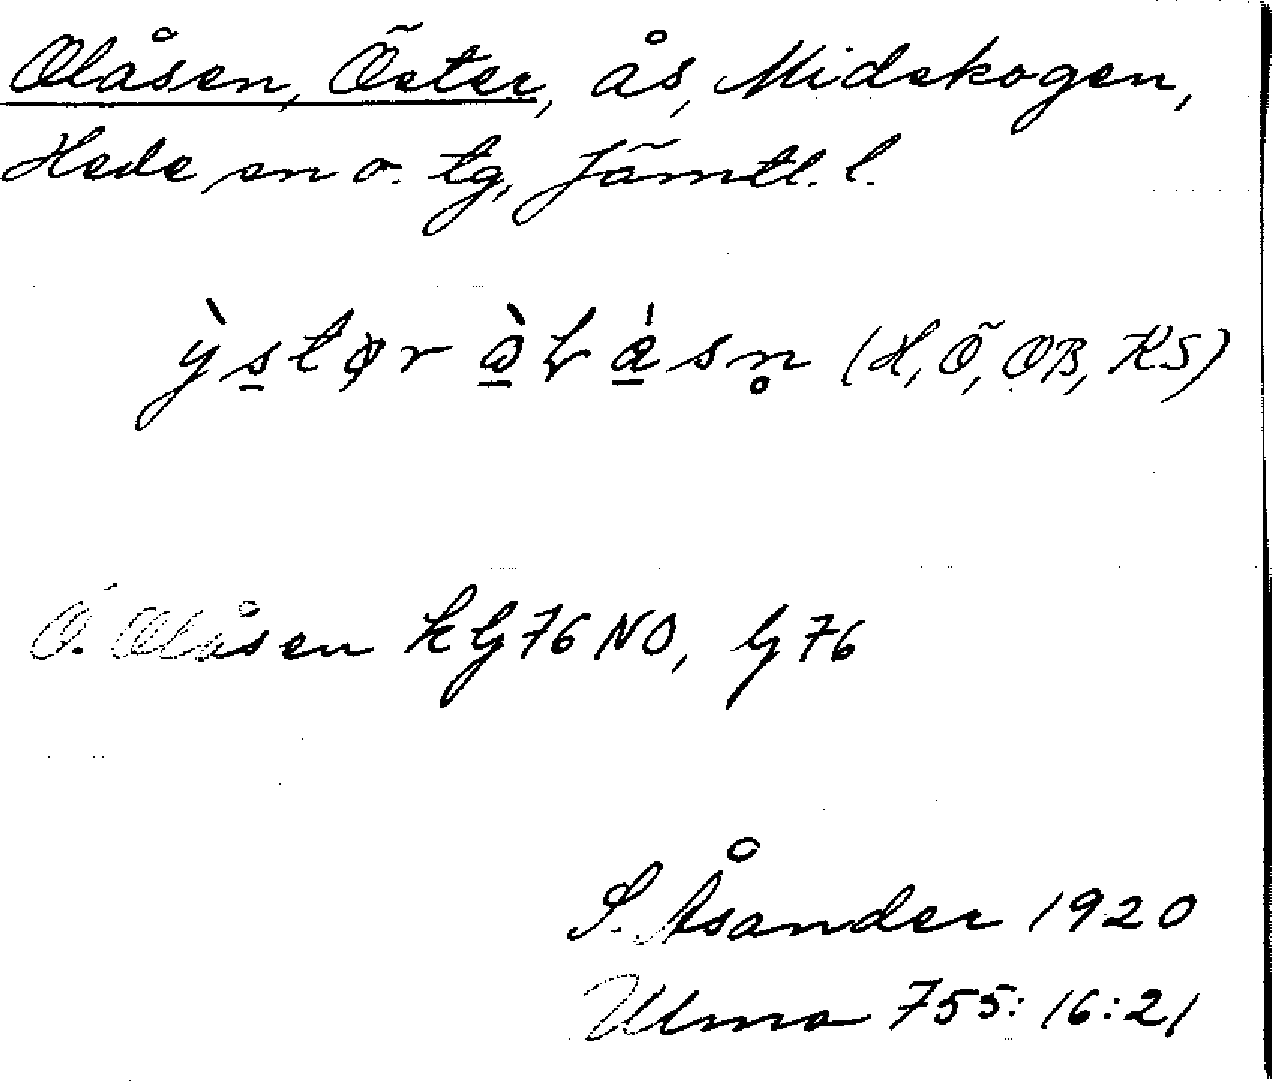 Olåsen, Öster, ås, Midskogen,
Hede sn o. tg, Jämtl. l.
(H, Ö, OB, KS)
Ö. Olåsen k G 76 NO, G 76
S. Åsander 1920
Ulma 755: 16:21